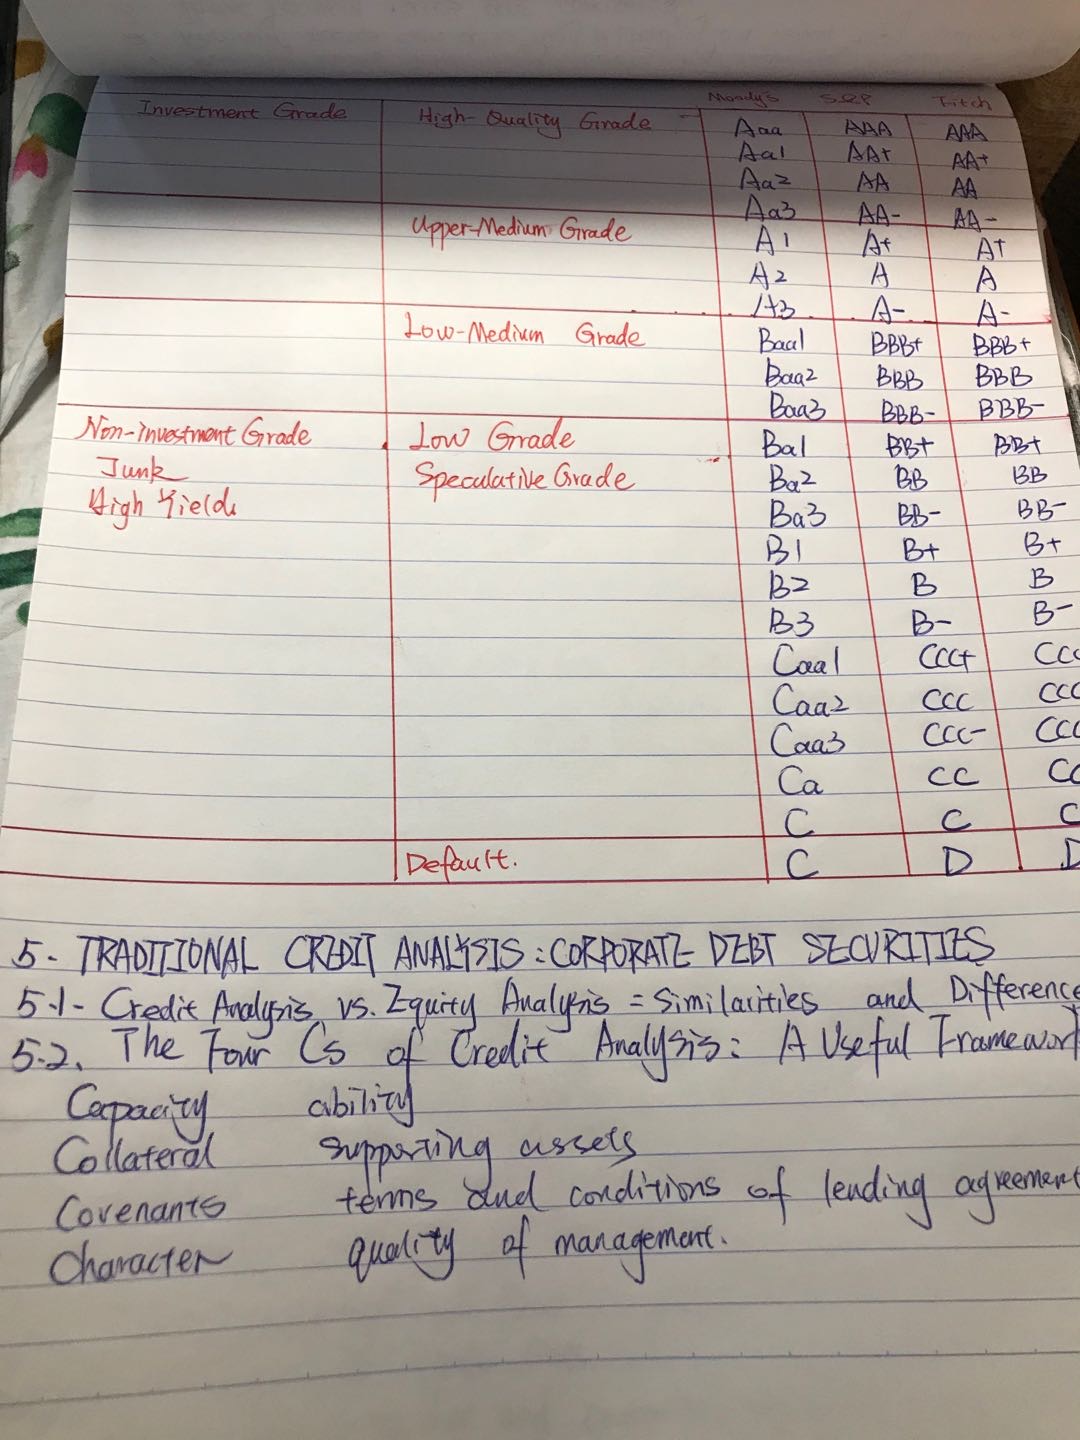 Moody's S&P Fitch
Investment Grade High-Quality Grade Aaa AAA AAA
Aa1 AA+ AA+
Aa2 AA AA
Aa3 AA- AA-
Upper-Medium Grade A1 A+ A+
A2 A A
A3 A- A-
Low-Medium Grade Baa1 BBB+ BBB+
Baa2 BBB BBB
Baa3 BBB- BBB-
Non-investment Grade Low Grade Ba1 BB+ BB+
Junk Speculative Grade Ba2 BB BB
High Yield Ba3 BB- BB-
B1 B+ B+
B2 B B
B3 B- B-
Caa1 CCC+ CCC
Caa2 CCC CCC
Caa3 CCC- CCC
Ca CC CC
C C C
Default. C D D
5- TRADITIONAL CREDIT ANALYSIS: CORPORATE DEBT SECURITIES
5.1- Credit Analysis vs. Equity Analysis = Similarities and Difference
5.2. The Four Cs of Credit Analysis: A Useful Framework
Capacity ability
Collateral supporting assets
Covenants terms and conditions of lending agreement
Character quality of management.